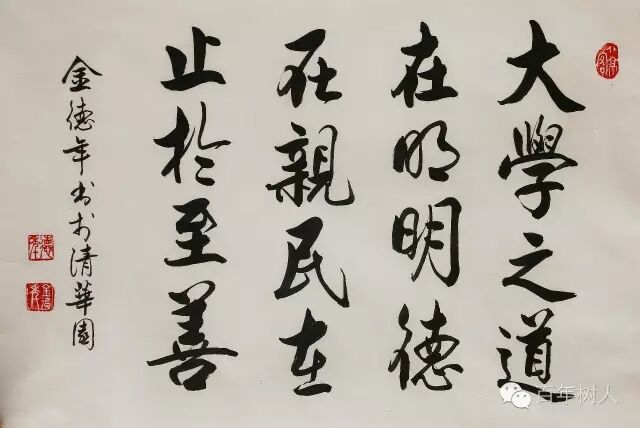 大學之道
在明明德
在親民在
止於至善
金德年书于清華園
百年树人